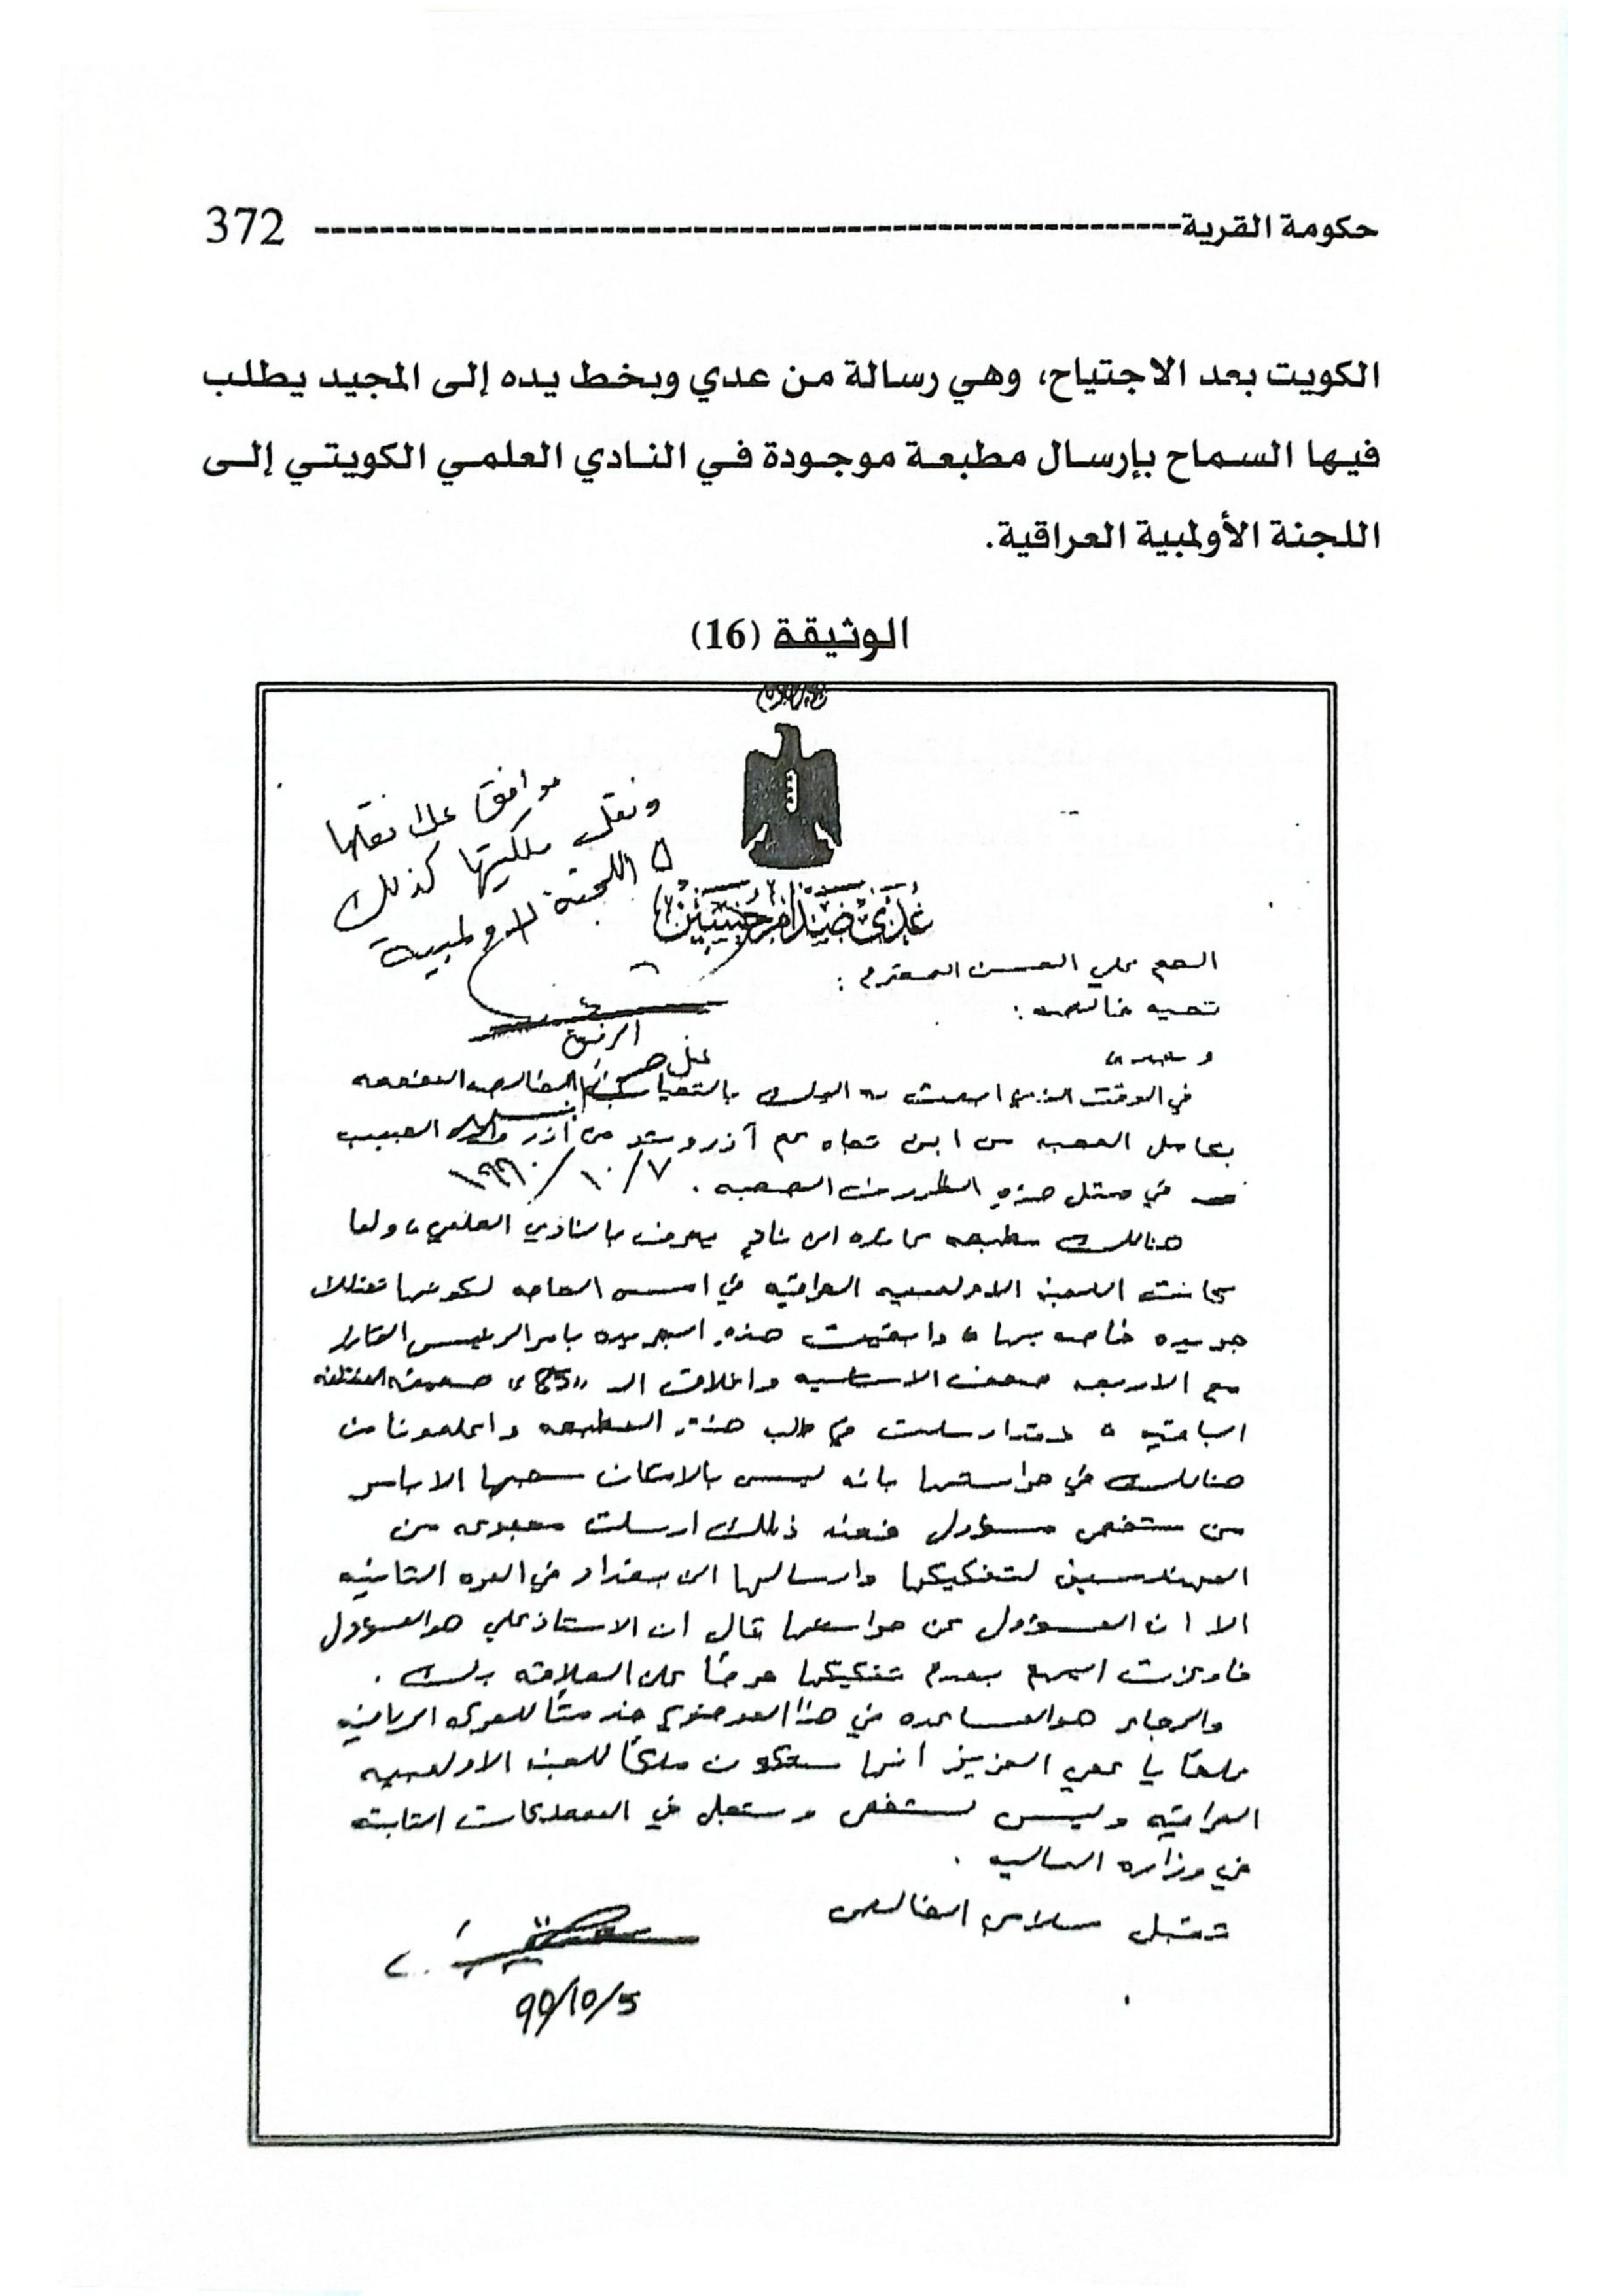 حكومة القرية 372
الكويت بعد الاجتياح، وهي رسالة من عدي وبخط يده إلى المجيد يطلب
فيها السماح بإرسال مطبعة موجودة في النادي العلمي الكويتي إلى
اللجنة الأولمبية العراقية.
الوثيقة (16)
موافق على نقلها
ونقل ملكيتها كذلك
اللجنة الاولمبية
عدي صدام حسين
العم علي الحسن المحترم :
تحيه خالصه :
وبعد
في الوقت الذي ابعث به اليك بالتحيات الخالصه المفعمه
بعامل المحبه من ابن تجاه عم آزر وشد من أزر والده الحبيب
في مثل هذه الظروف الصعبه .
١٩٩٠/١٠/٧
هنالك مطبعه عائده الى نادي يعرف بالنادي العلمي، ولما
كانت اللجنه الاولمبيه العراقيه في امس الحاجه لكونها تمتلك
جريده خاصه بها، وابقيت هذه الجريده بامر الرئيس القائد
مع الاربعه صحف الاساسيه واغلاق الـ
الباقيه، وقد ارسلت في طلب هذه المطبعه واعلمونا من
هنالك في حراستها بانه ليس بالامكان سحبها الا بامر
من شخص مسؤول فعند ذلك ارسلت مجموعه من
المهندسين لتفكيكها وارسالها الى بغداد في المره الثانيه
الا ان المسؤول عن حراستها قال ان الاستاذ علي هو المسؤول
فاوعزت اليهم بعدم تفكيكها حرصاً على العلاقه بك .
والرجاء هو المساعده في هذا الموضوع خدمتاً للحركه الرياضيه
علماً يا عمي العزيز انها ستكون ملكاً للجنه الاولمبيه
العراقيه وليس لشخص وستسجل في الممتلكات الثابته
في وزاره الماليه .
تقبل سلامي الخالص
99/10/5